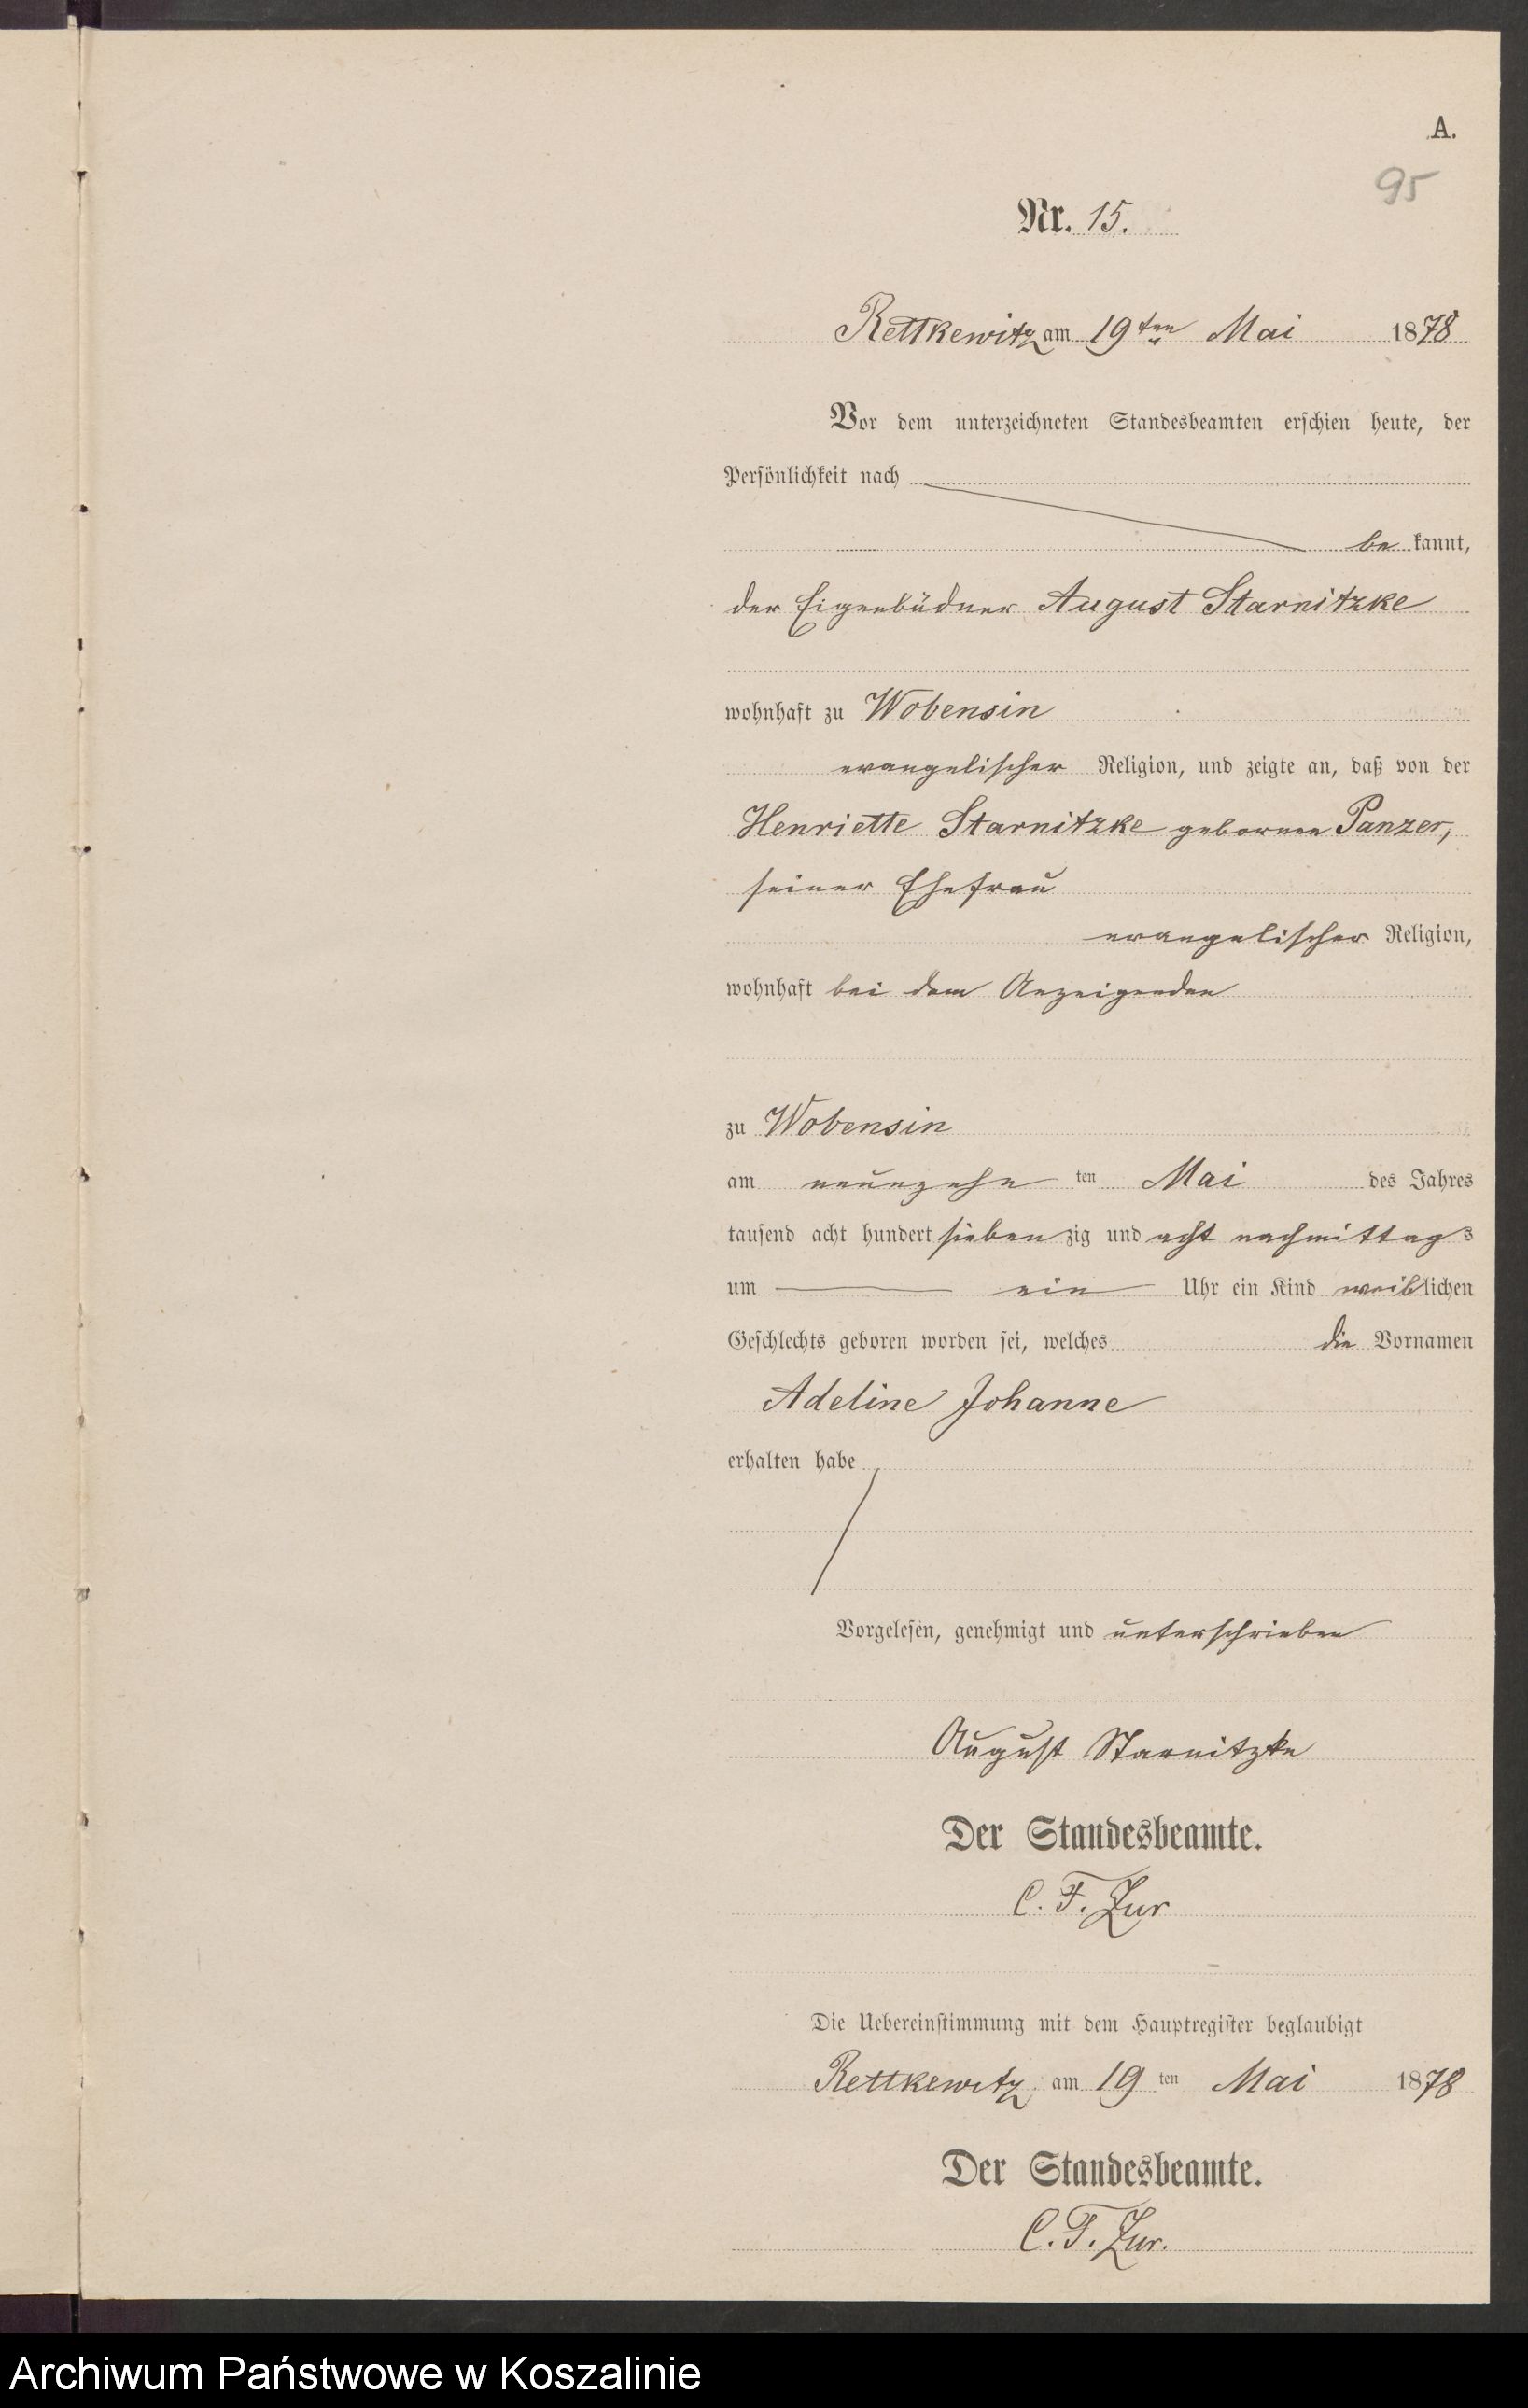 A.
95
Nr. 15.
Rettkewitz am 19ten Mai 1878
Vor dem unterzeichneten Standesbeamten erschien heute, der
Persönlichkeit nach
be kannt,
der Eigenbüdner August Starnitzke
wohnhaft zu Wobensin
evangelischer Religion, und zeigte an, daß von der
Henriette Starnitzke gebornen Panzer,
seiner Ehefrau
evangelischer Religion,
wohnhaft bei dem Anzeigenden
zu Wobensin
am neunzehn ten Mai des Jahres
tausend acht hundert sieben zig und acht nachmittags
um ein Uhr ein Kind weiblichen
Geschlechts geboren worden sei, welches die Vornamen
Adeline Johanne
erhalten habe
Vorgelesen, genehmigt und unterschrieben
August Starnitzke
Der Standesbeamte.
C. F. Zur
Die Uebereinstimmung mit dem Hauptregister beglaubigt
Rettkewitz, am 19 ten Mai 1878
Der Standesbeamte.
C. F. Zur.
Archiwum Państwowe w Koszalinie